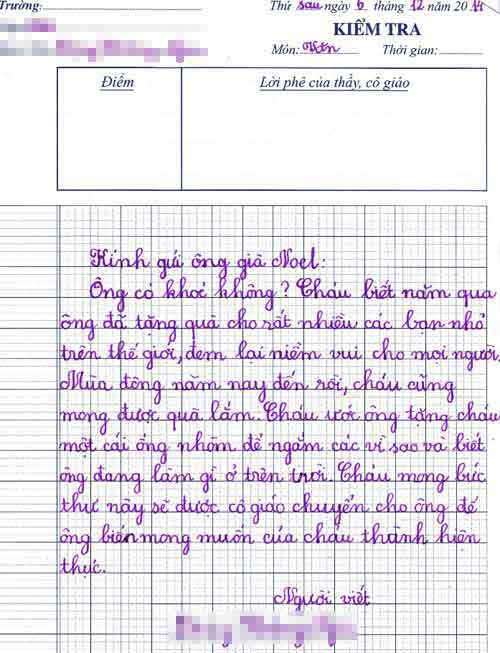 Trường:
Thứ sau ngày 6 tháng 12 năm 20
KIỂM TRA
Môn: Văn Thời gian:
Điểm Lời phê của thầy, cô giáo
Kính gửi ông già Noel:
Ông có khoẻ không? Cháu biết năm qua
ông đã tặng quà cho rất nhiều các bạn nhỏ
trên thế giới, đem lại niềm vui cho mọi người.
Mùa đông năm nay đến rồi, cháu cũng
mong được quà lắm. Cháu ước ông tặng cháu
một cái ống nhòm để ngắm các vì sao và biết
ông đang làm gì ở trên trời. Cháu mong bức
thư này sẽ được cô giáo chuyển cho ông để
ông biến mong muốn của cháu thành hiện
thực.
Người viết